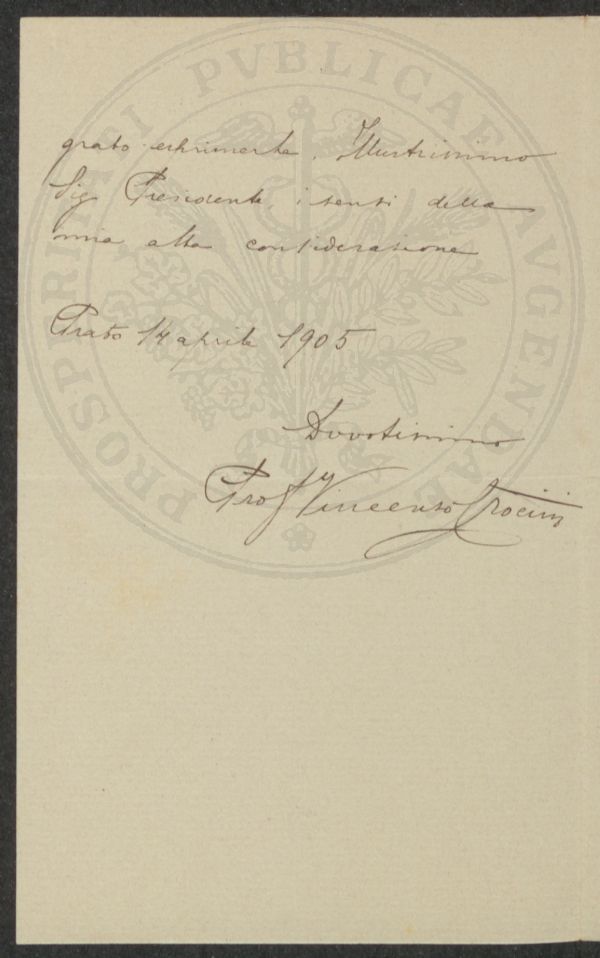 grato esprimerle, Illustrissimo
Sig. Presidente, i sensi della
mia alta considerazione
Prato 14 aprile 1905
Devotissimo
Prof Vincenzo
PROSPERITATI PVBLICAE AVGENDAE